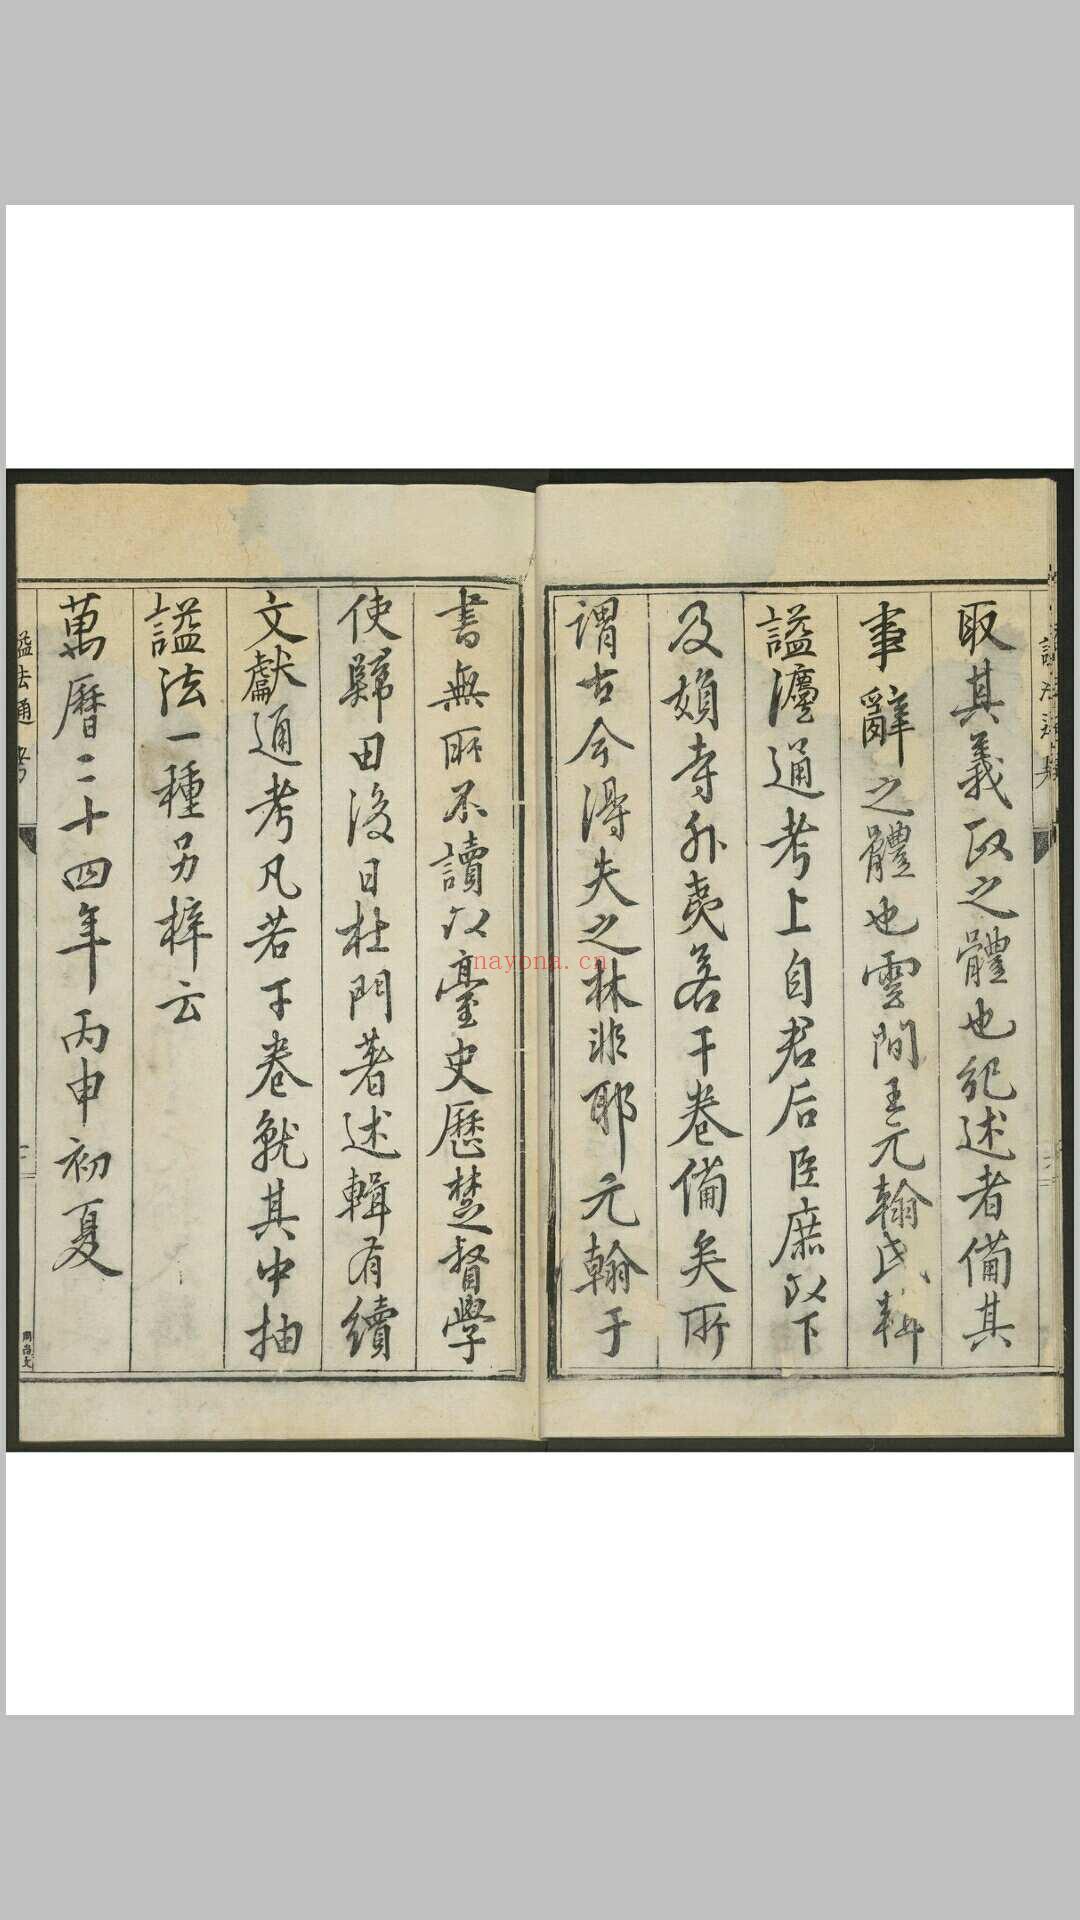 取其義政之體也紀述者備其
事辭之體也雲間王元翰氏輯
諡灋通考上自君后臣庶以下
及嬪寺外夷若干卷備矣所
謂古今得失之林非耶元翰于
書無所不讀以臺史歷楚督學
使歸田後日杜門著述輯有續
文獻通考凡若干卷就其中抽
諡法一種另梓云
萬曆二十四年丙申初夏
諡法通考
周尚文
nayona.cn